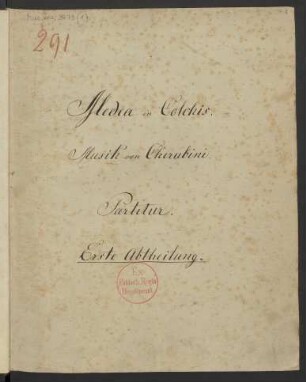 291
Medea in Colchis.
Musik von Cherubini
Partitur.
Erste Abtheilung.
Ex